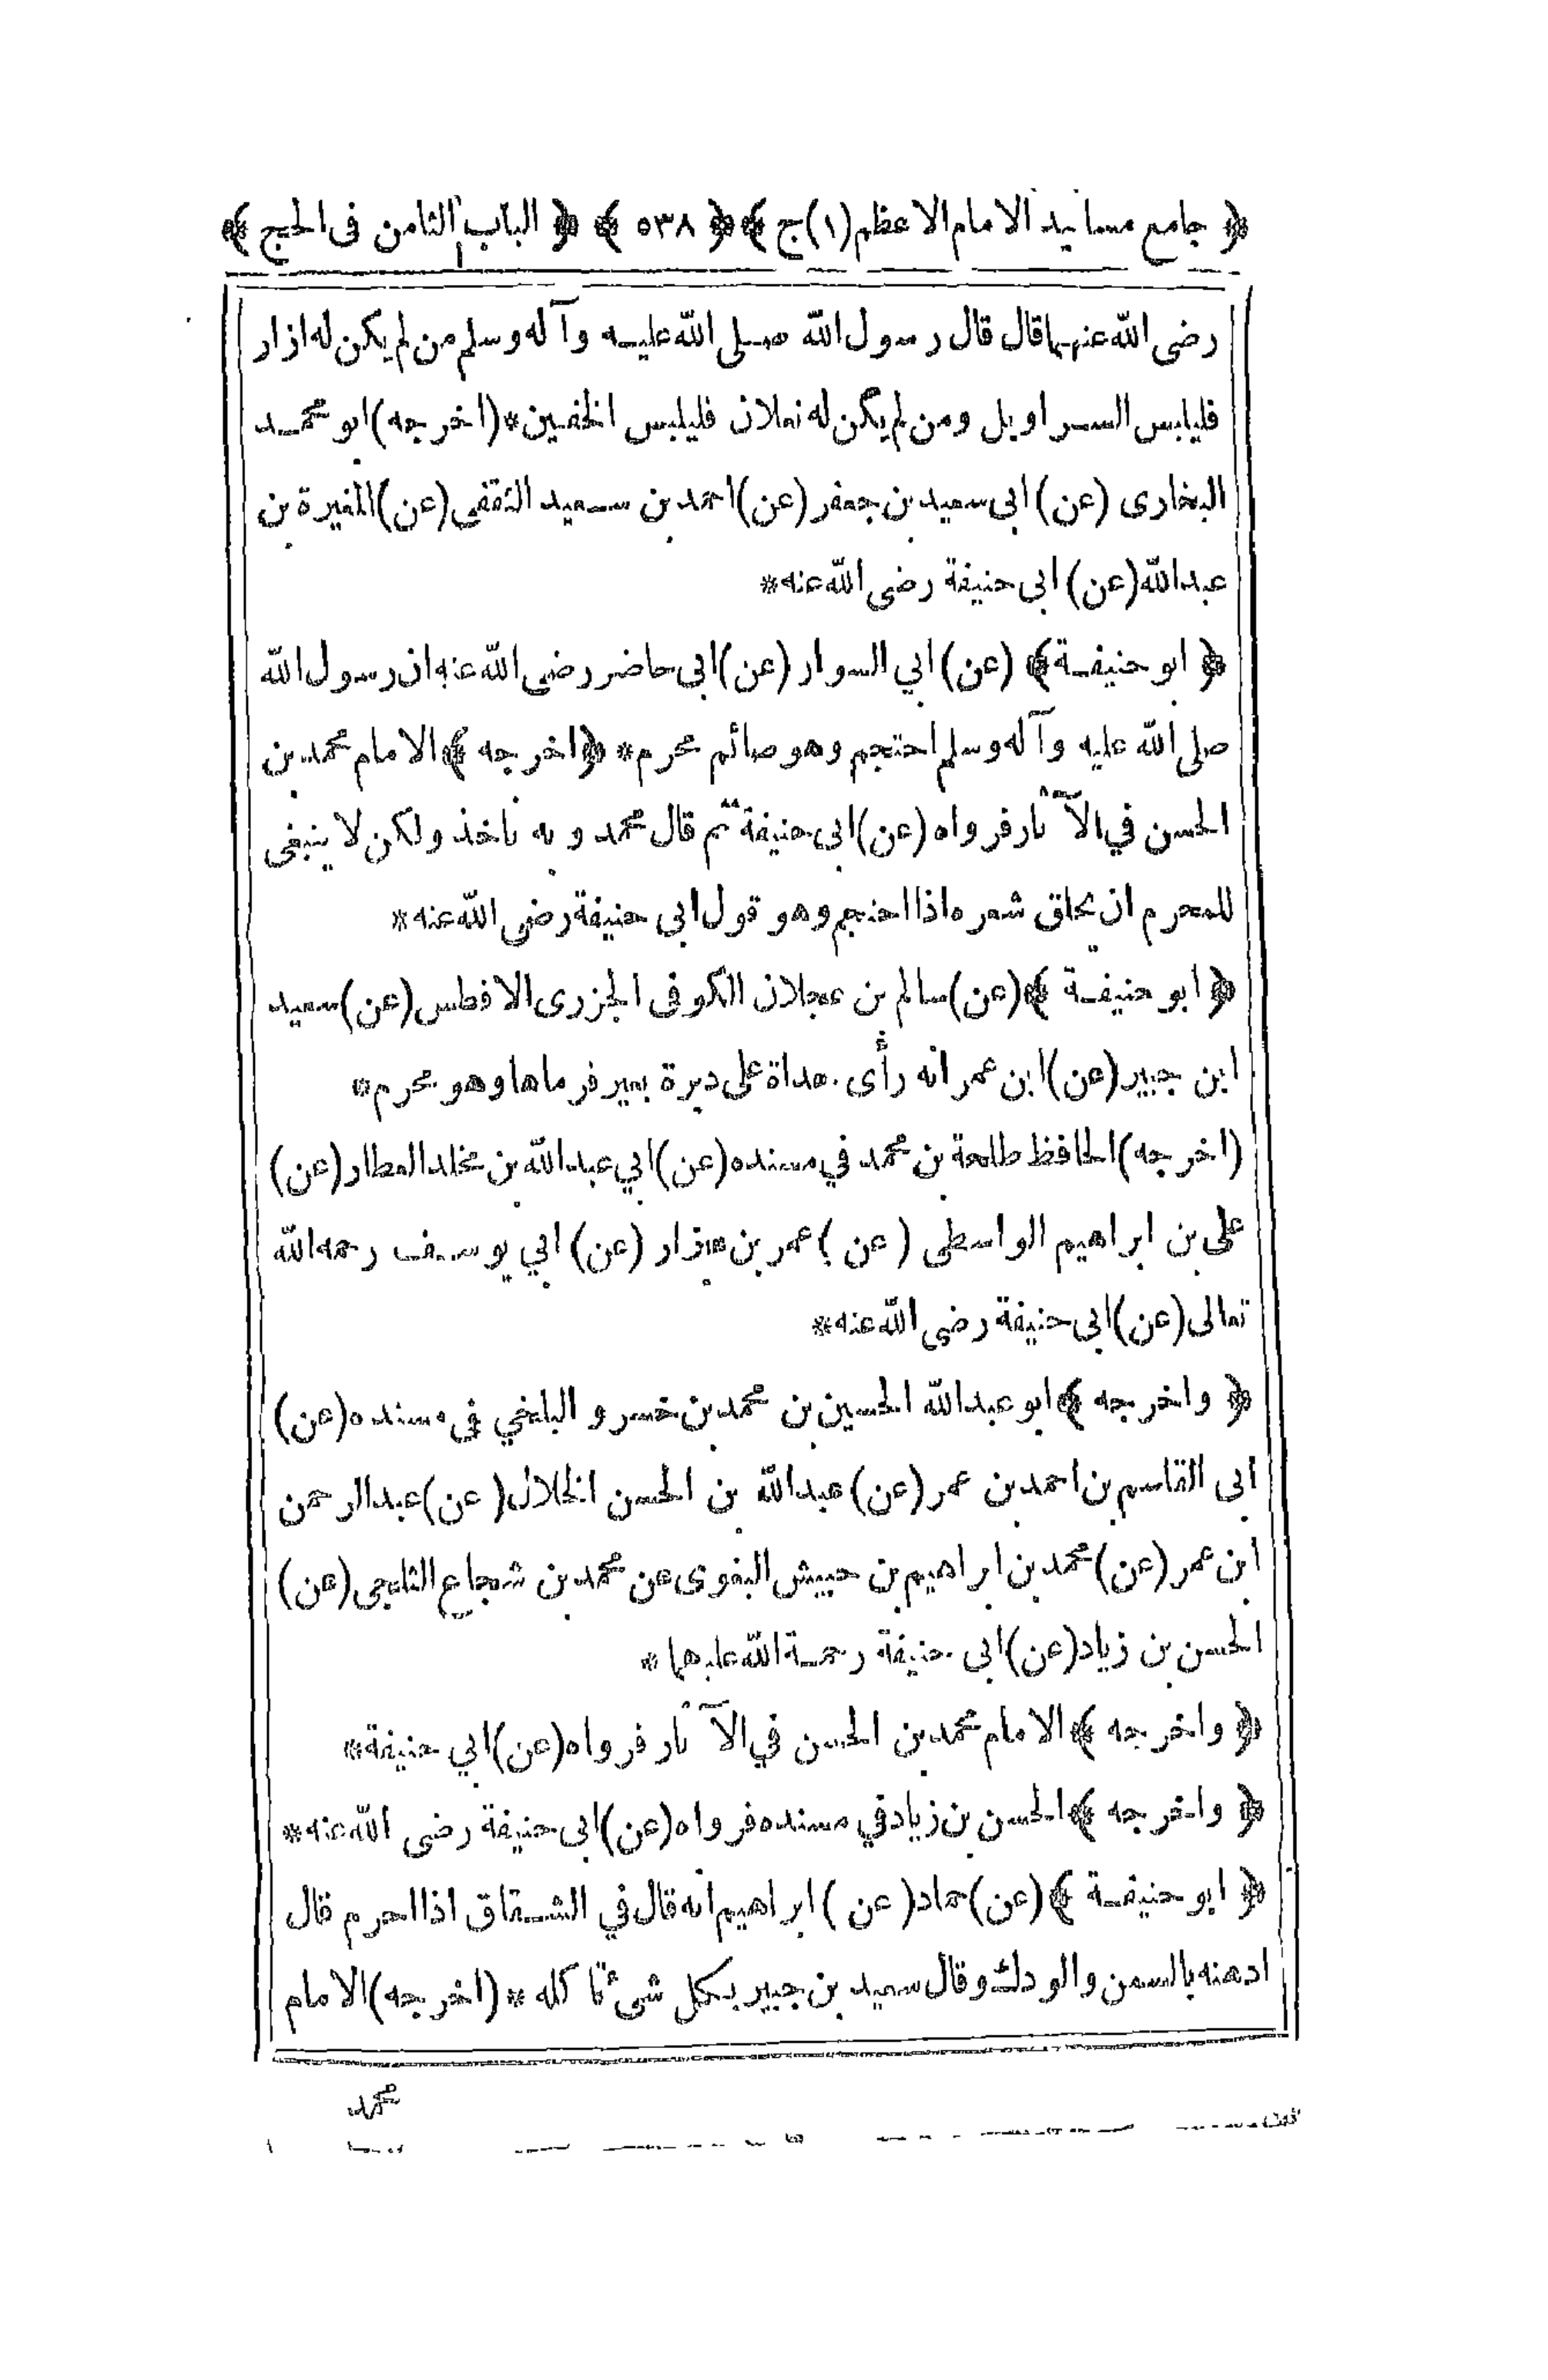 ﴿ جامع مسانيد الامام الاعظم (١) ج ﴾ ﴿ ٥٣٨ ﴾ ﴿ الباب الثامن فى الحج ﴾
رضى الله عنهما قال قال رسول الله صلى الله عليه وآله وسلم من لم يكن له ازار
فليلبس السراويل ومن لم يكن له نعلان فليلبس الخفين * (اخرجه) ابو محمد
البخارى (عن) ابى سعيد بن جعفر (عن) احمد بن سعيد الثقفى (عن) المغيرة بن
عبدالله (عن) ابى حنيفة رضى الله عنه *
﴿ ابو حنيفة ﴾ (عن) ابي السوار (عن) ابى حاضر رضى الله عنه ان رسول الله
صلى الله عليه وآله وسلم احتجم وهو صائم محرم * ﴿ اخرجه ﴾ الامام محمد بن
الحسن في الآثار فرواه (عن) ابى حنيفة ثم قال محمد وبه ناخذ ولكن لا ينبغى
للمحرم ان يحلق شعره اذا احتجم وهو قول ابى حنيفة رضى الله عنه *
﴿ ابو حنيفة ﴾ (عن) سالم بن عجلان الكوفى الجزرى الافطس (عن) سعيد
ابن جبير (عن) ابن عمر انه رأى حداة على دبرة بعير فرماها وهو محرم *
(اخرجه) الحافظ طلحة بن محمد في مسنده (عن) ابي عبدالله بن مخلد العطار (عن)
على بن ابراهيم الواسطى (عن) عمر بن (عن) ابي يوسف رحمه الله
تعالى (عن) ابى حنيفة رضى الله عنه *
﴿ واخرجه ﴾ ابو عبدالله الحسين بن محمد بن خسرو البلخي فى مسنده (عن)
ابى القاسم بن احمد بن عمر (عن) عبدالله بن الحسن الخلال (عن) عبدالرحمن
ابن عمر (عن) محمد بن ابراهيم بن حبيش البغوى عن محمد بن شجاع الثلجى (عن)
الحسن بن زياد (عن) ابى حنيفة رحمة الله عليهما *
﴿ واخرجه ﴾ الامام محمد بن الحسن في الآثار فرواه (عن) ابي حنيفة *
﴿ واخرجه ﴾ الحسن بن زياد في مسنده فرواه (عن) ابى حنيفة رضى الله عنه *
﴿ ابو حنيفة ﴾ (عن) حماد (عن) ابراهيم انه قال في الشقاق اذا احرم قال
ادهنه بالسمن والودك وقال سعيد بن جبير بكل شئ تأكله * (اخرجه) الامام
محمد